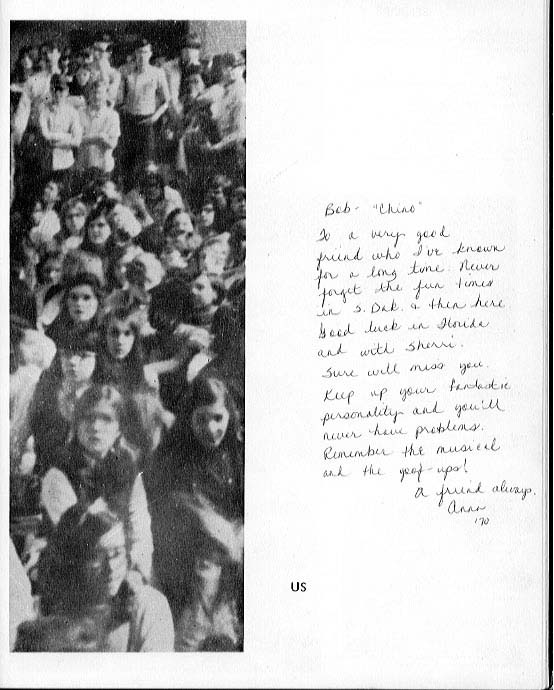 Bob - "Chino"
To a very good
friend who I've known
for a long time. Never
forget the fun times
in S. Dak. & then here
Good luck in Florida
and with Sherri.
Sure will miss you.
Keep up your fantastic
personality and you'll
never have problems.
Remember the musical
and the goof-ups!
A friend always,
Ann
'70
US